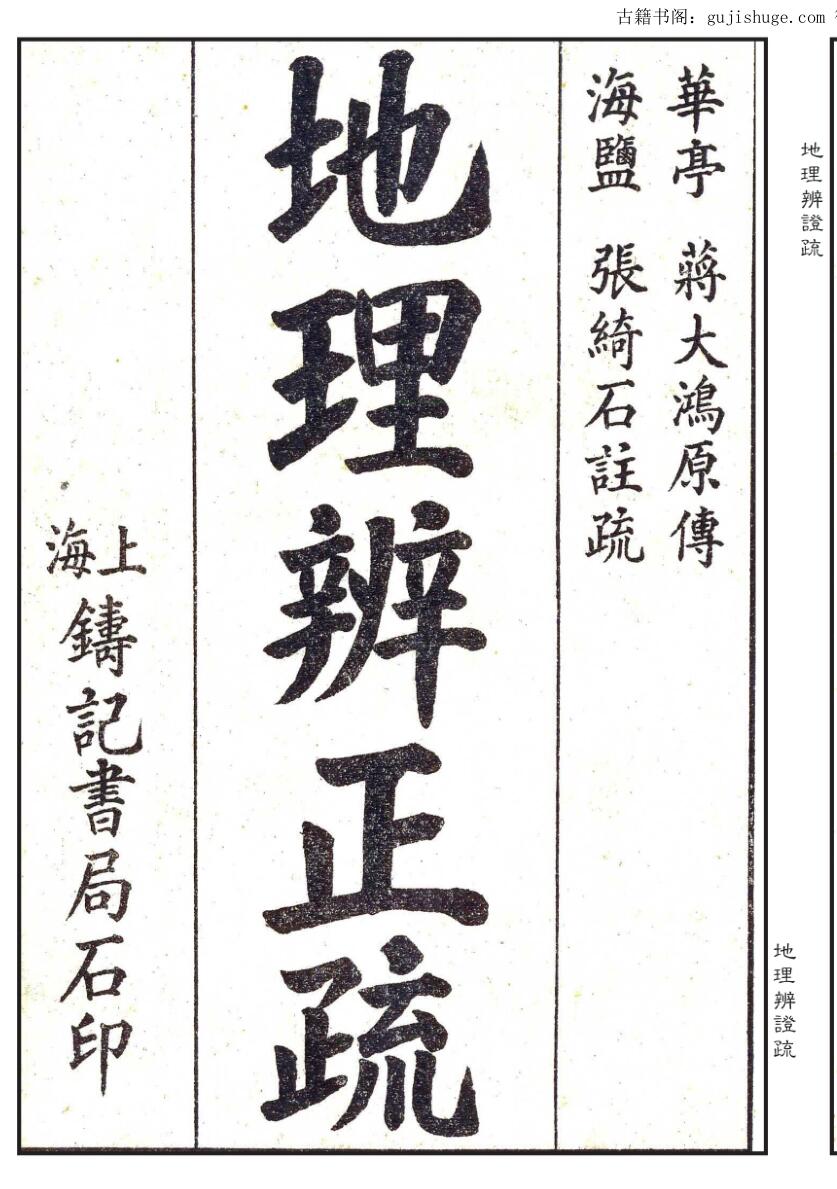 古籍书阁：gujishuge.com
華亭 蔣大鴻原傳
海鹽 張綺石註疏
地理辨正疏
上海鑄記書局石印
地理辨證疏
地理辨證疏